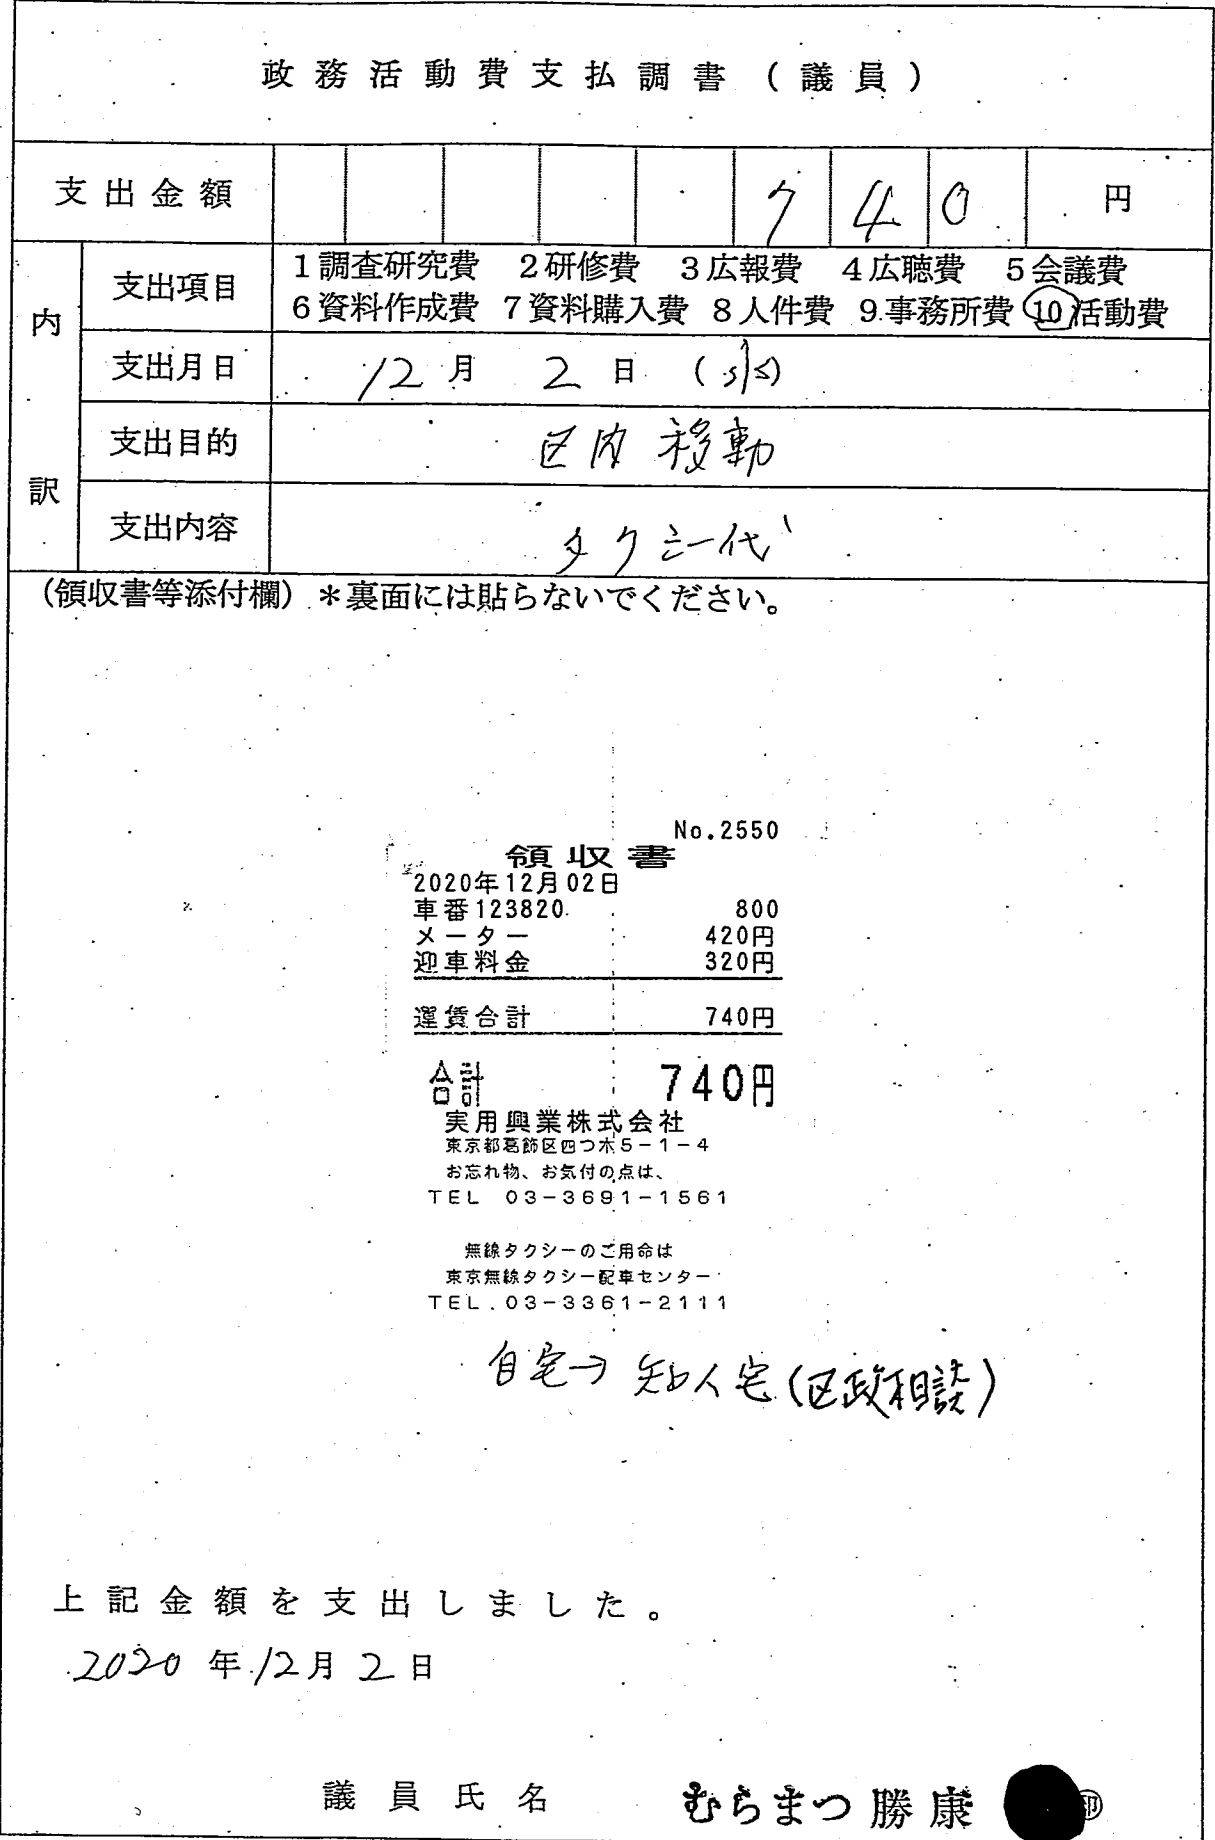 政務活動費支払調書(議員)
支出金額 740 円
内訳
支出項目 1調査研究費 2研修費 3広報費 4広聴費 5会議費
6資料作成費 7資料購入費 8人件費 9事務所費 10活動費
支出月日 12月 2日 (水)
支出目的 区内移動
支出内容 タクシー代
(領収書等添付欄) *裏面には貼らないでください。
No.2550
領収書
2020年12月02日
車番123820 800
メーター 420円
迎車料金 320円
運賃合計 740円
合計 740円
実用興業株式会社
東京都葛飾区四つ木5-1-4
お忘れ物、お気付の点は、
TEL 03-3691-1561
無線タクシーのご用命は
東京無線タクシー配車センター
TEL.03-3361-2111
自宅→知人宅(区政相談)
上記金額を支出しました。
2020年12月2日
議員氏名 むらまつ勝康 印